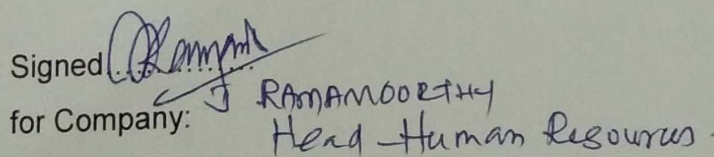 Signed
J RAMAMOORTHY
for Company:
Head-Human Resources.